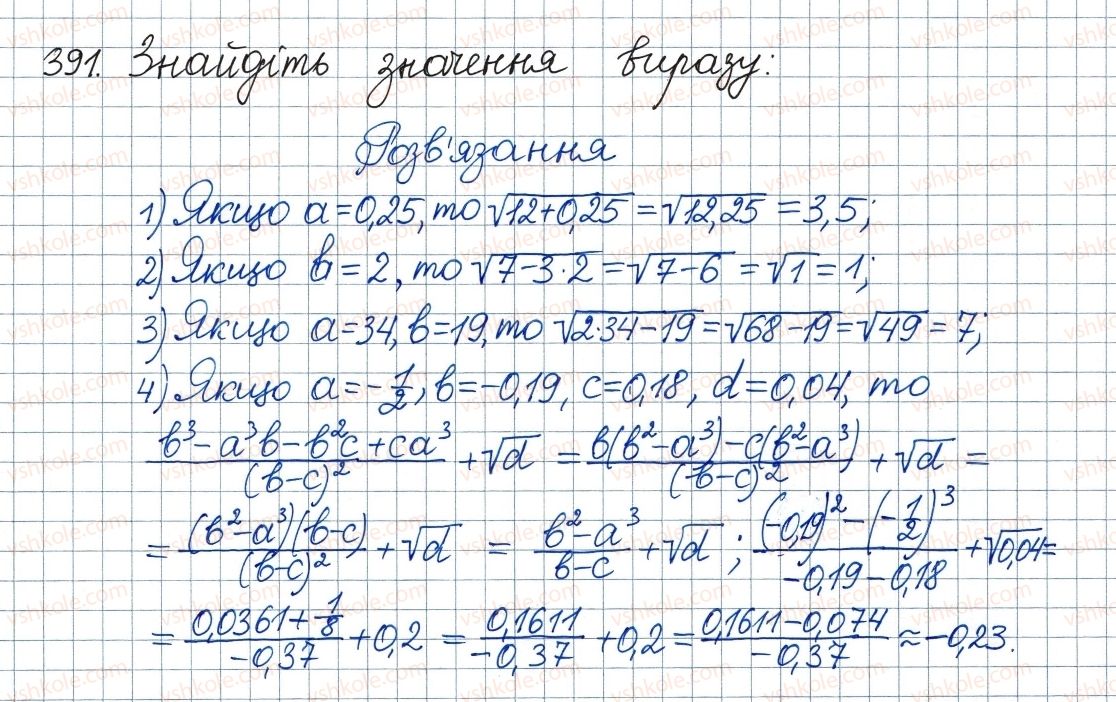 391. Знайдіть значення виразу:
Розв'язання
1) Якщо a=0,25, то √12+0,25 = √12,25 = 3,5;
2) Якщо b=2, то √7-3·2 = √7-6 = √1 = 1;
3) Якщо a=34, b=19, то √2·34-19 = √68-19 = √49 = 7;
4) Якщо a=-1/2, b=-0,19, c=0,18, d=0,04, то
(b³-a³b-b²c+ca³)/(b-c)² + √d = (b(b²-a³)-c(b²-a³))/(b-c)² + √d =
= (b²-a³)(b-c)/(b-c)² + √d = (b²-a³)/(b-c) + √d; ((-0,19)²-(-1/2)³)/(-0,19-0,18) + √0,04 =
= (0,0361+1/8)/(-0,37) + 0,2 = 0,1611/(-0,37) + 0,2 = (0,1611-0,074)/(-0,37) ≈ -0,23.